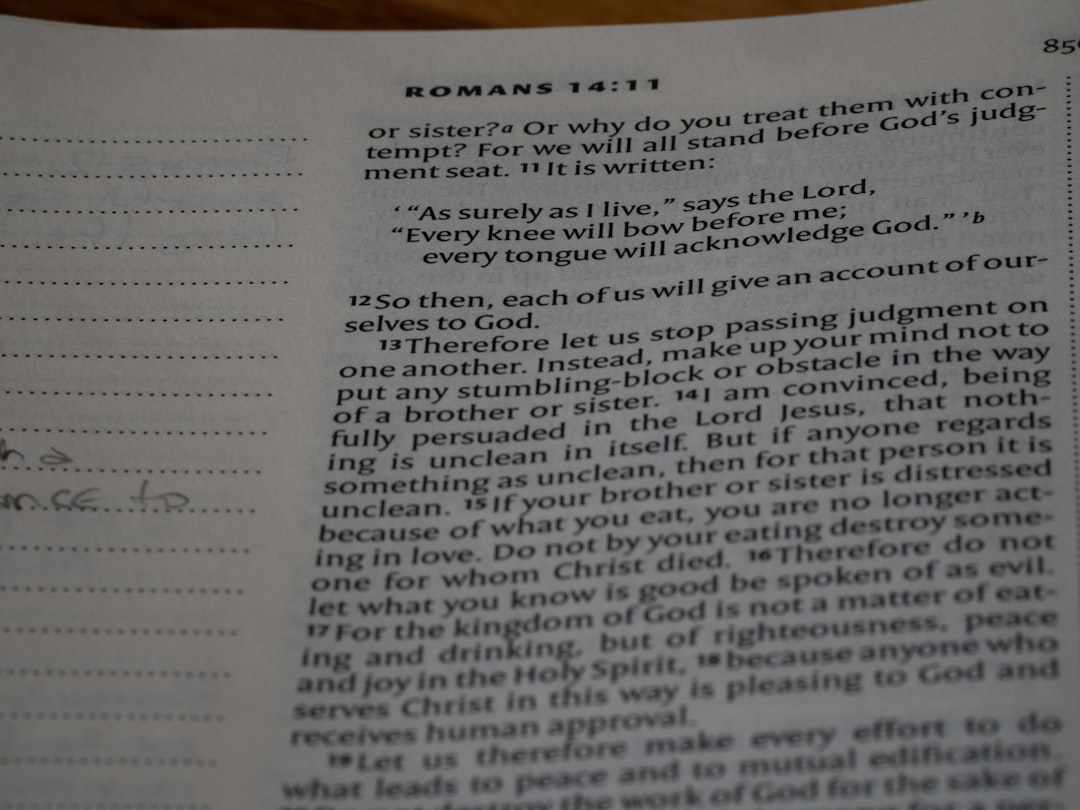 ROMANS 14:11
85
or sister?a Or why do you treat them with con-
tempt? For we will all stand before God's judg-
ment seat. 11 It is written:
‘ “As surely as I live,” says the Lord,
“Every knee will bow before me;
every tongue will acknowledge God.” ’ b
12 So then, each of us will give an account of our-
selves to God.
13 Therefore let us stop passing judgment on
one another. Instead, make up your mind not to
put any stumbling-block or obstacle in the way
of a brother or sister. 14 I am convinced, being
fully persuaded in the Lord Jesus, that noth-
ing is unclean in itself. But if anyone regards
something as unclean, then for that person it is
unclean. 15 If your brother or sister is distressed
because of what you eat, you are no longer act-
ing in love. Do not by your eating destroy some-
one for whom Christ died. 16 Therefore do not
let what you know is good be spoken of as evil.
17 For the kingdom of God is not a matter of eat-
ing and drinking, but of righteousness, peace
and joy in the Holy Spirit, 18 because anyone who
serves Christ in this way is pleasing to God and
receives human approval.
19 Let us therefore make every effort to do
what leads to peace and to mutual edification.
destroy the work of God for the sake of
to